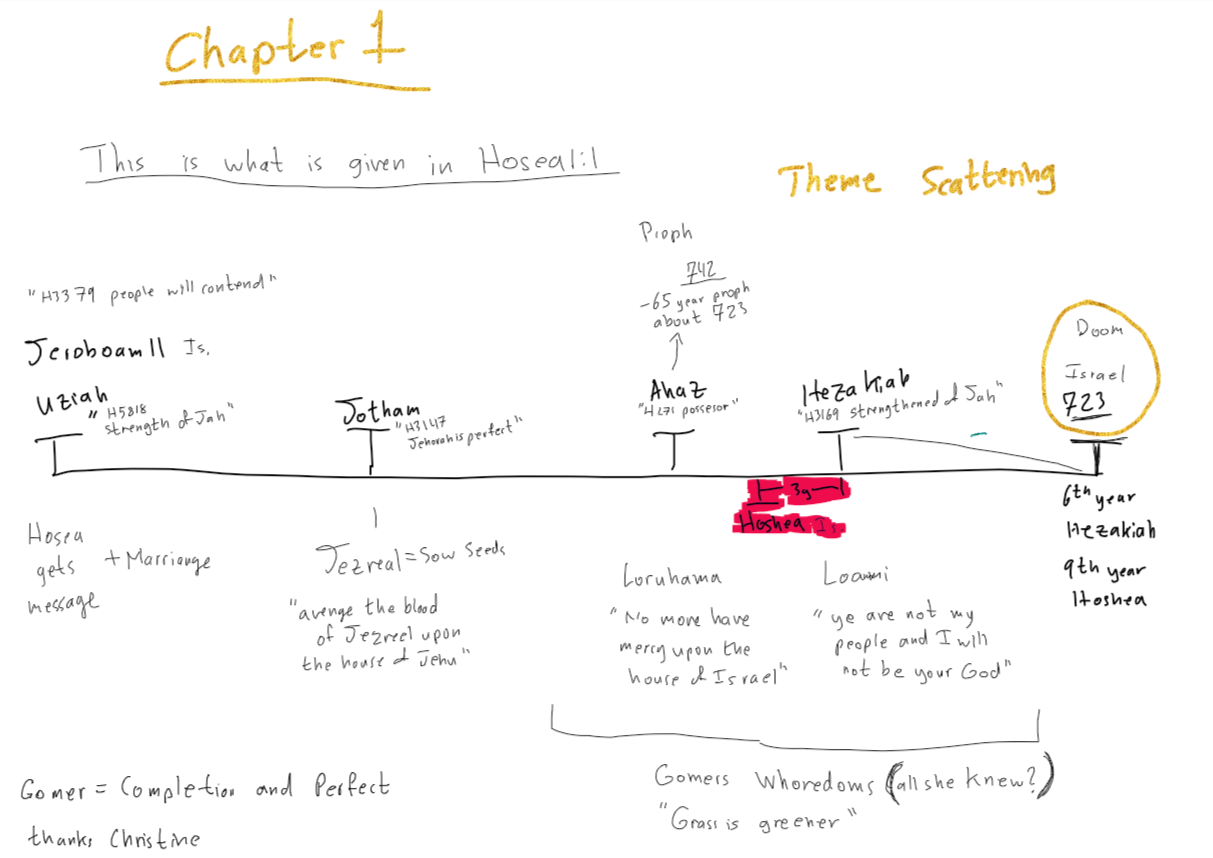 Chapter 1
This is what is given in Hosea1:1
Theme Scattering
Proph
742
-65 year proph
about 723
"H3379 people will contend"
Jeroboam II Is.
Uziah
"H5818
strength of Jah"
Jotham
"H3147
Jehovah is perfect"
Ahaz
"H271 possesor"
Hezakiah
"H3169 strengthened of Jah"
Doom
Israel
723
3y
Hoshea Is
6th year
Hezakiah
9th year
Hoshea
Hosea
gets
message
+ Marriange
Jezreal = Sow Seeds
"avenge the blood
of Jezreel upon
the house of Jehu"
Loruhama
"No more have
mercy upon the
house of Israel"
Loammi
"ye are not my
people and I will
not be your God"
Gomers Whoredoms (all she knew?)
"Grass is greener"
Gomer = Completion and Perfect
thanks Christine